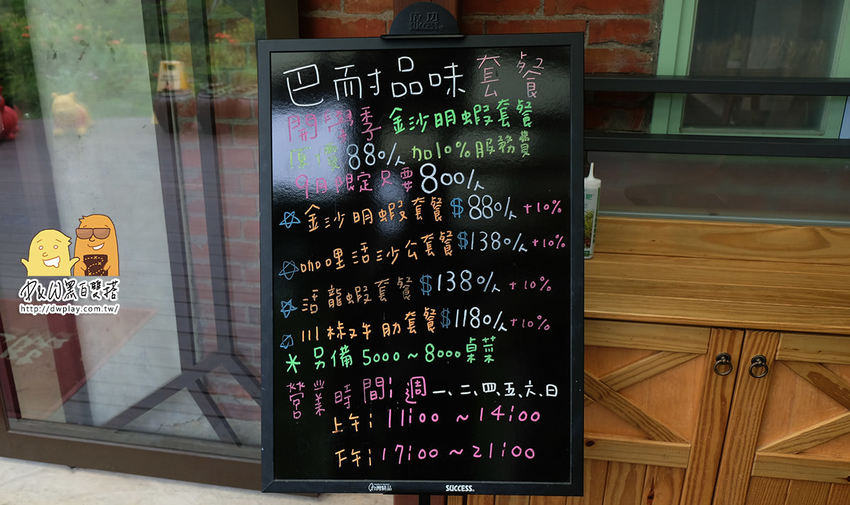 SUCCESS
巴耐品味套餐
開學季 金沙明蝦套餐
優 880/人 加10%服務費
9月限定只要800/人
金沙明蝦套餐$880/人+10%
咖哩活沙公套餐$1380/人+10%
活龍蝦套餐$1380/人+10%
川椒牛肋套餐$1180/人+10%
*另備5000~8000桌菜
營業時間:週一、二、四、五、六、日
上午:11:00~14:00
下午:17:00~21:00
SUCCESS
DxW黑白雙搭
http://dwplay.com.tw/